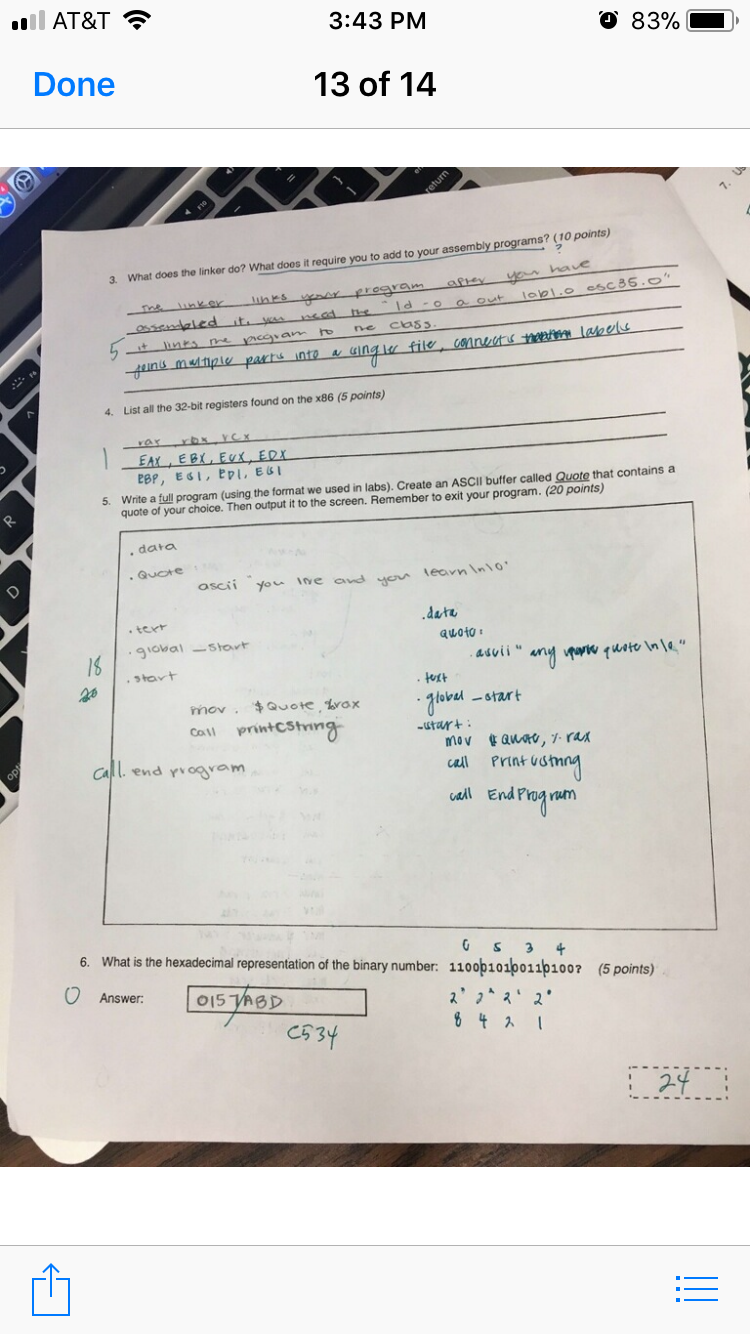 AT&T 3:43 PM 83%
Done 13 of 14
F10
=
return
}
]
7.
3. What does the linker do? What does it require you to add to your assembly programs? (10 points)
?
The linker links your program after you have
assembled it, you need the "ld -o a.out lab1.o csc35.o"
it links the program to the class.
5
joins multiple parts into a single file, connects labels
4. List all the 32-bit registers found on the x86 (5 points)
rax, rbx, rcx
1
EAX, EBX, ECX, EDX
EBP, ESI, EDI, ESI
5. Write a full program (using the format we used in labs). Create an ASCII buffer called Quote that contains a
quote of your choice. Then output it to the screen. Remember to exit your program. (20 points)
.data
.Quote
ascii "you live and you learn\n\0"
.text
.global _start
.start
mov. $Quote, %rax
call printCString
call. end program
18
20
.data
quote:
.ascii "any quote\n\0"
.text
.global _start
_start:
mov $Quote, %rax
call PrintCString
call EndProgram
C 5 3 4
6. What is the hexadecimal representation of the binary number: 1100010100110100? (5 points)
0
Answer: 0157ABD
C534
2³ 2² 2¹ 2⁰
8 4 2 1
24
R
D
opt